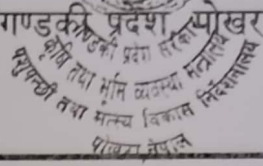 गण्डकी प्रदेश, पोखरा
गण्डकी प्रदेश सरकार
कृषि तथा भूमि व्यवस्था मन्त्रालय
पशुपन्छी तथा मत्स्य विकास निर्देशनालय
पोखरा नेपाल